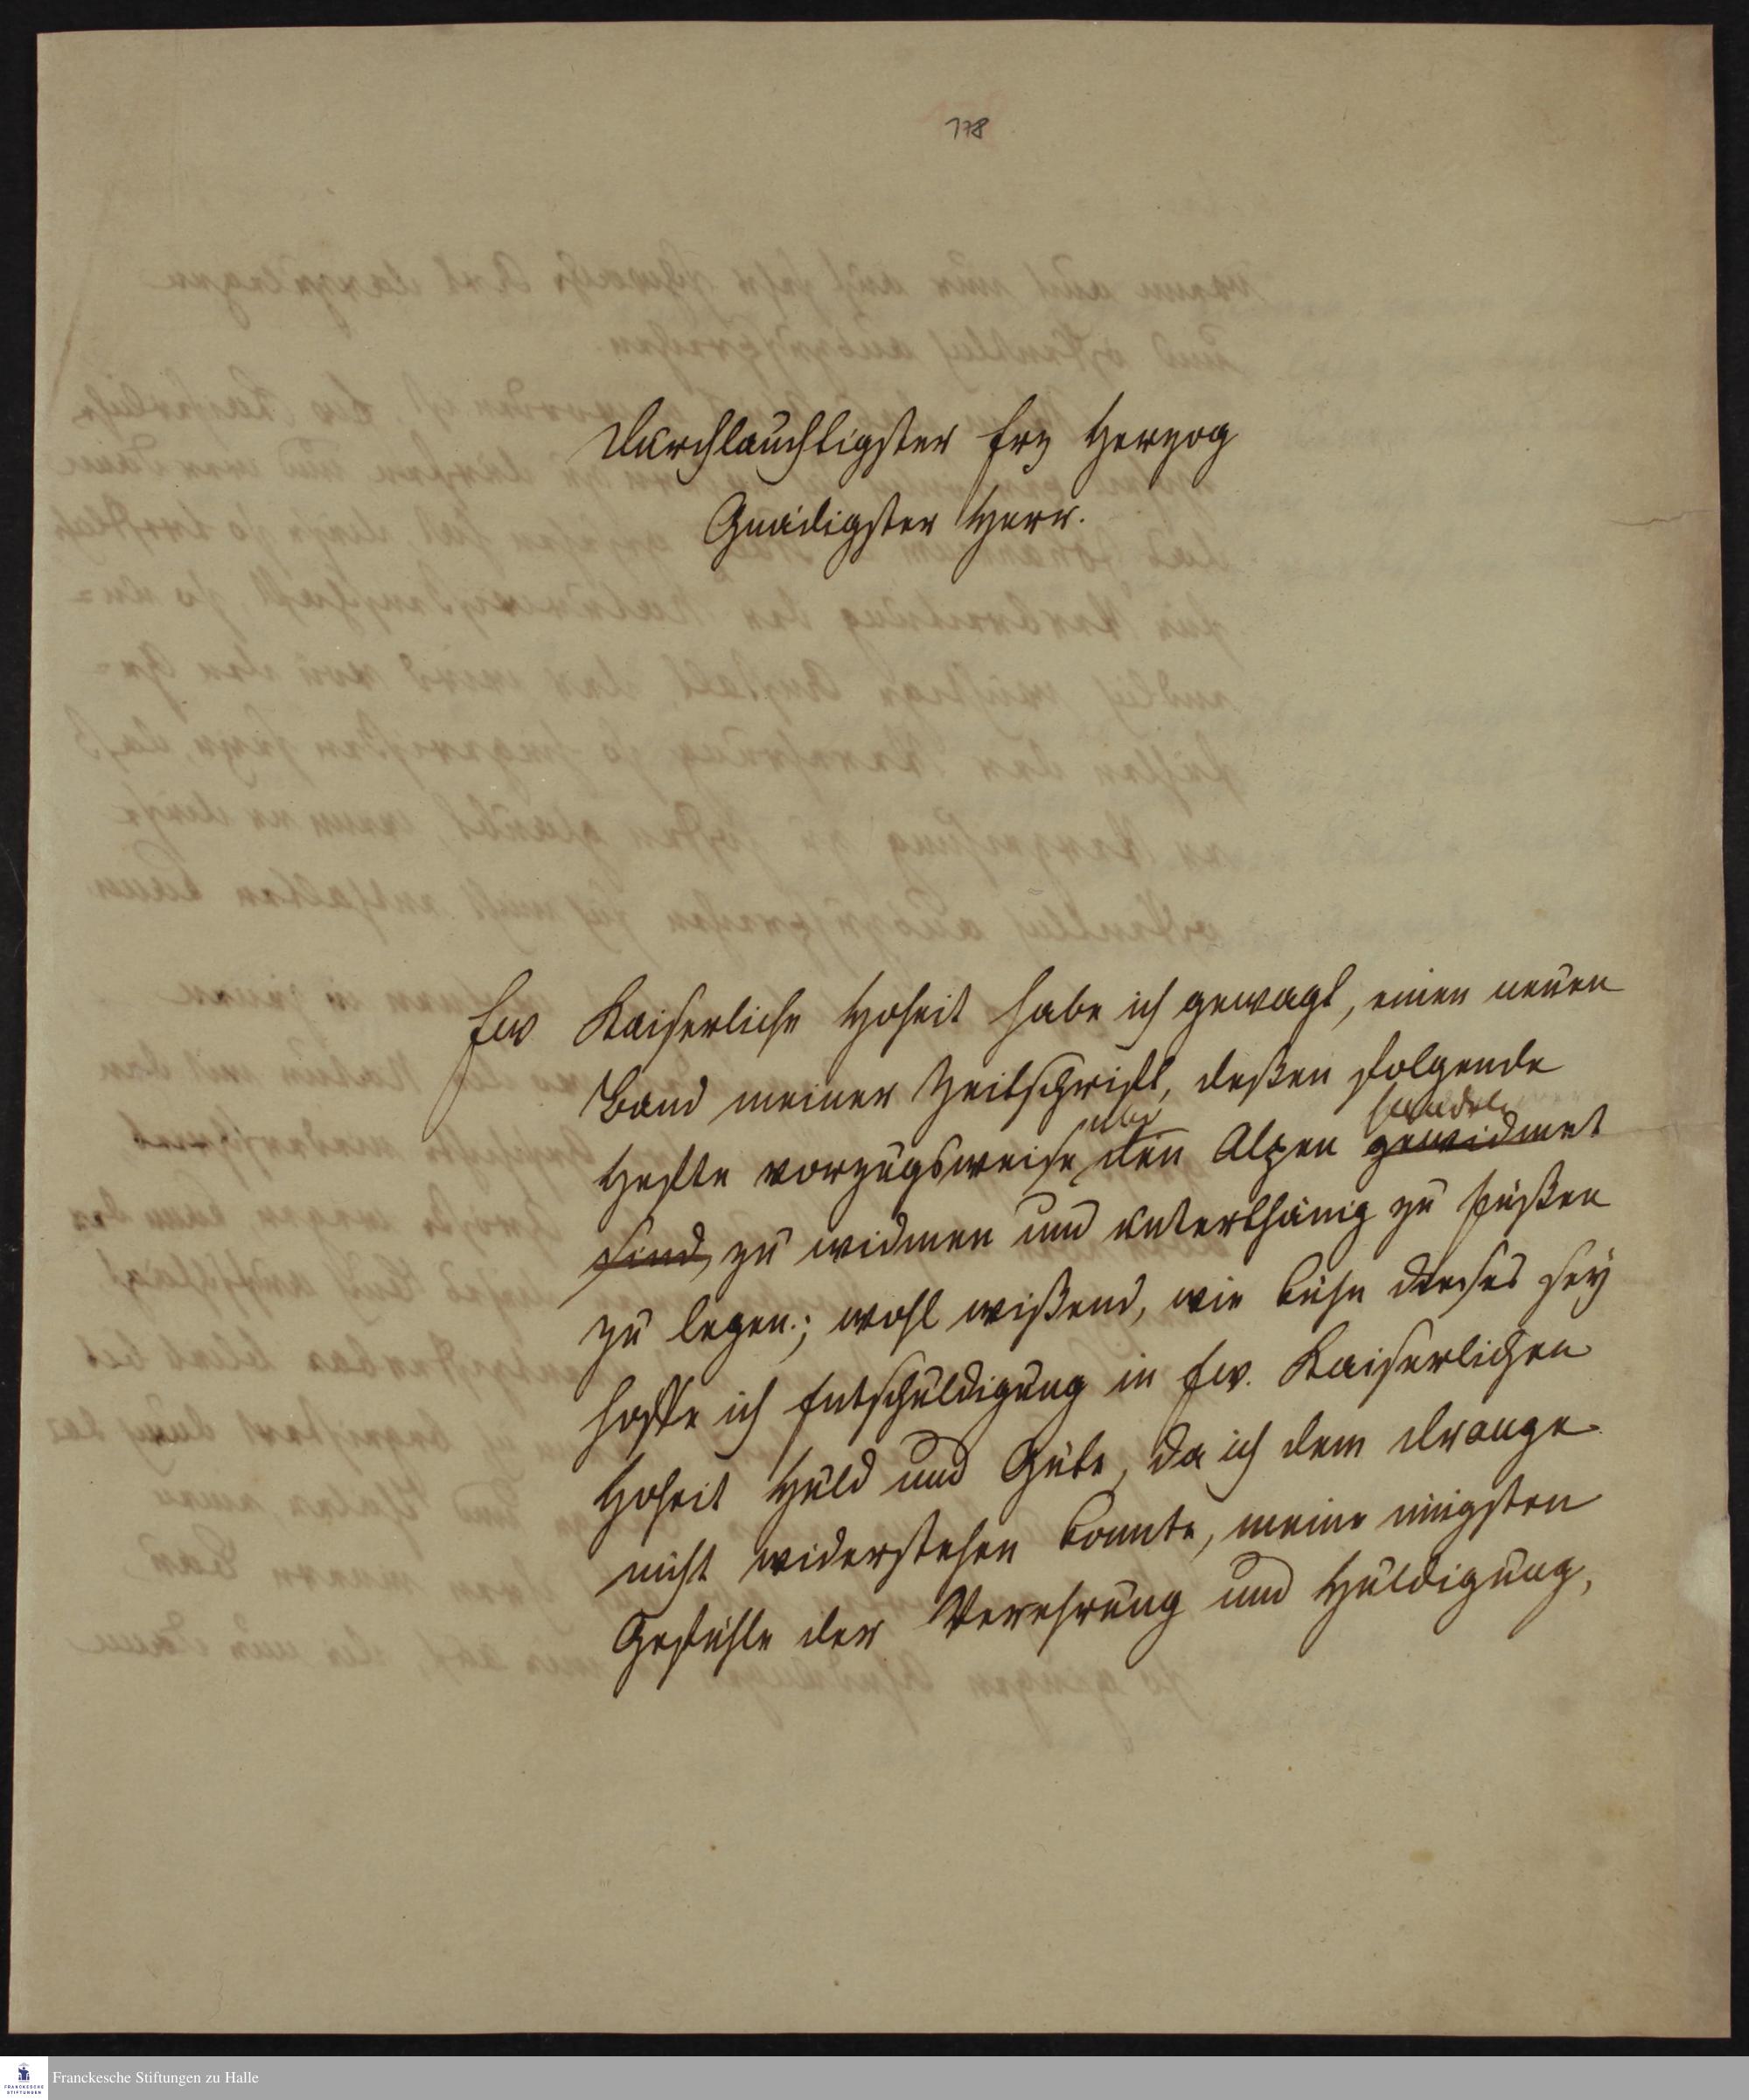 178
Durchlauchtigster Erz Herzog
Gnädigster Herr.
Ew Kaiserliche Hoheit habe ich gewagt, einen neuen
Band meiner Zeitschrift, deßen folgende
über handeln
Hefte vorzugsweise den Alpen gewidmet
sind, zu widmen und unterthänig zu füßen
zu legen; wohl wißend, wie kühn dieses sey
hoffe ich Entschuldigung in Ew. Kaiserlichen
Hoheit Huld und Güte, da ich dem drange
nicht widerstehen konnte, meine innigsten
Gefühle der Verehrung und Huldigung,
FRANCKESCHE STIFTUNGEN
Franckesche Stiftungen zu Halle